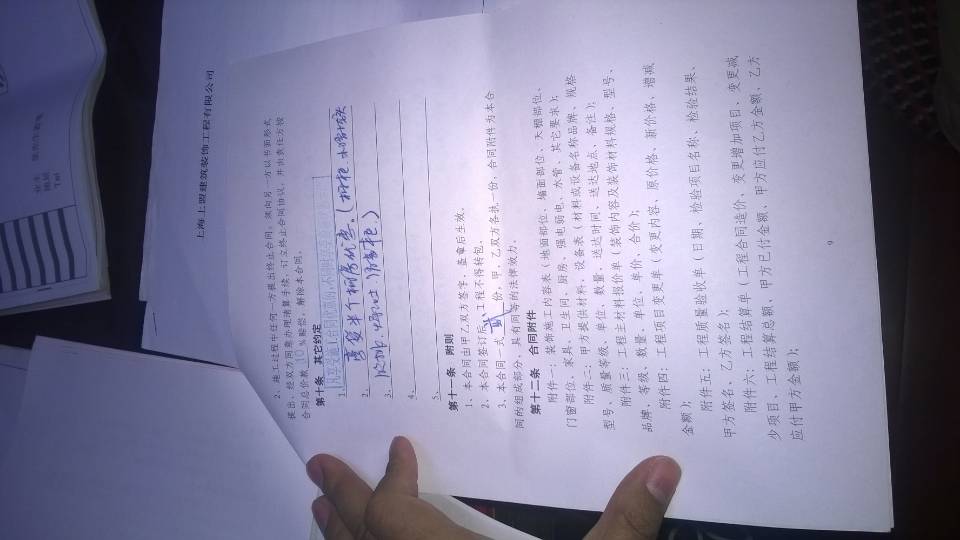 上海上盟建筑装饰工程有限公司
2、施工过程中任何一方提出终止合同，须向另一方以书面形式
提出，经双方同意办理清算手续，订立终止合同协议，并由责任方按
合同总价款 10 %赔偿，解除本合同。
第十条 其它约定
1、
2、
3、
4、
5、
第十一条 附则
1、本合同由甲乙双方签字、盖章后生效。
2、本合同签订后，工程不得转包。
3、本合同一式 贰 份，甲、乙双方各执一份，合同附件为本合
同的组成部分，具有同等的法律效力。
第十二条 合同附件
附件一：装饰施工内容表（地面部位、墙面部位、天棚部位、
门窗部位、家具、卫生间、厨房、强电弱电、水管、其它要求）；
附件二：甲方提供材料、设备表（材料或设备名称品牌、规格
型号、质量等级、单位、数量、送达时间、送达地点、备注）；
附件三：工程主材料报价单（装饰内容及装饰材料规格、型号、
品牌、等级、数量、单位、单价、合价）；
附件四：工程项目变更单（变更内容、原价格、新价格、增减
金额）；
附件五：工程质量验收单（日期、检验项目名称、检验结果、
甲方签名、乙方签名）；
附件六：工程结算单（工程合同造价、变更增加项目、变更减
少项目、工程结算总额、甲方已付金额、甲方应付乙方金额、乙方
应付甲方金额）；
9